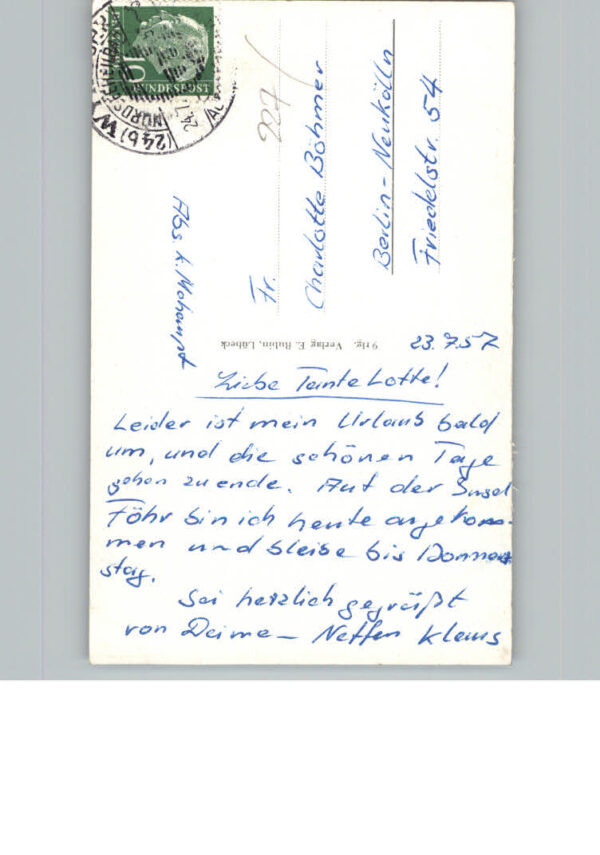 23.7.57
Liebe Tante Lotte!
Leider ist mein Urlaub bald
um, und die schönen Tage
gehen zu ende. Auf der Insel
Föhr bin ich heute angekom-
men und bleibe bis Donners-
stag.
Sei herzlich gegrüßt
von Deime Neffen Klaus
Fr.
Charlotte Böhmer
Berlin-Neukölln
Friedelstr. 54
Abs. K.
927
9 rlg. Verlag E. Rubin, Lübeck
10
BUNDESPOST
(24b) W
NORDSEEHEILBAD
24.7.